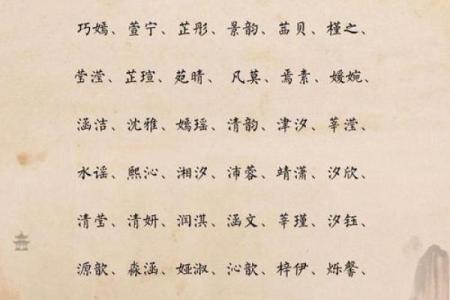 巧嫣、萱宁、芷彤、景韵、茁贝、槿之、
莹滢、芷瑄、苑晴、凡莫、焉素、媛婉、
涵洁、沈雅、嫣瑶、清韵、津汐、莘滢、
水谣、熙沁、湘汐、沛蓉、靖潇、汐欣、
清莹、清妍、润淇、涵文、莘瑾、汐钰、
源歆、淼涵、娅淑、沁歆、梓伊、烁馨、